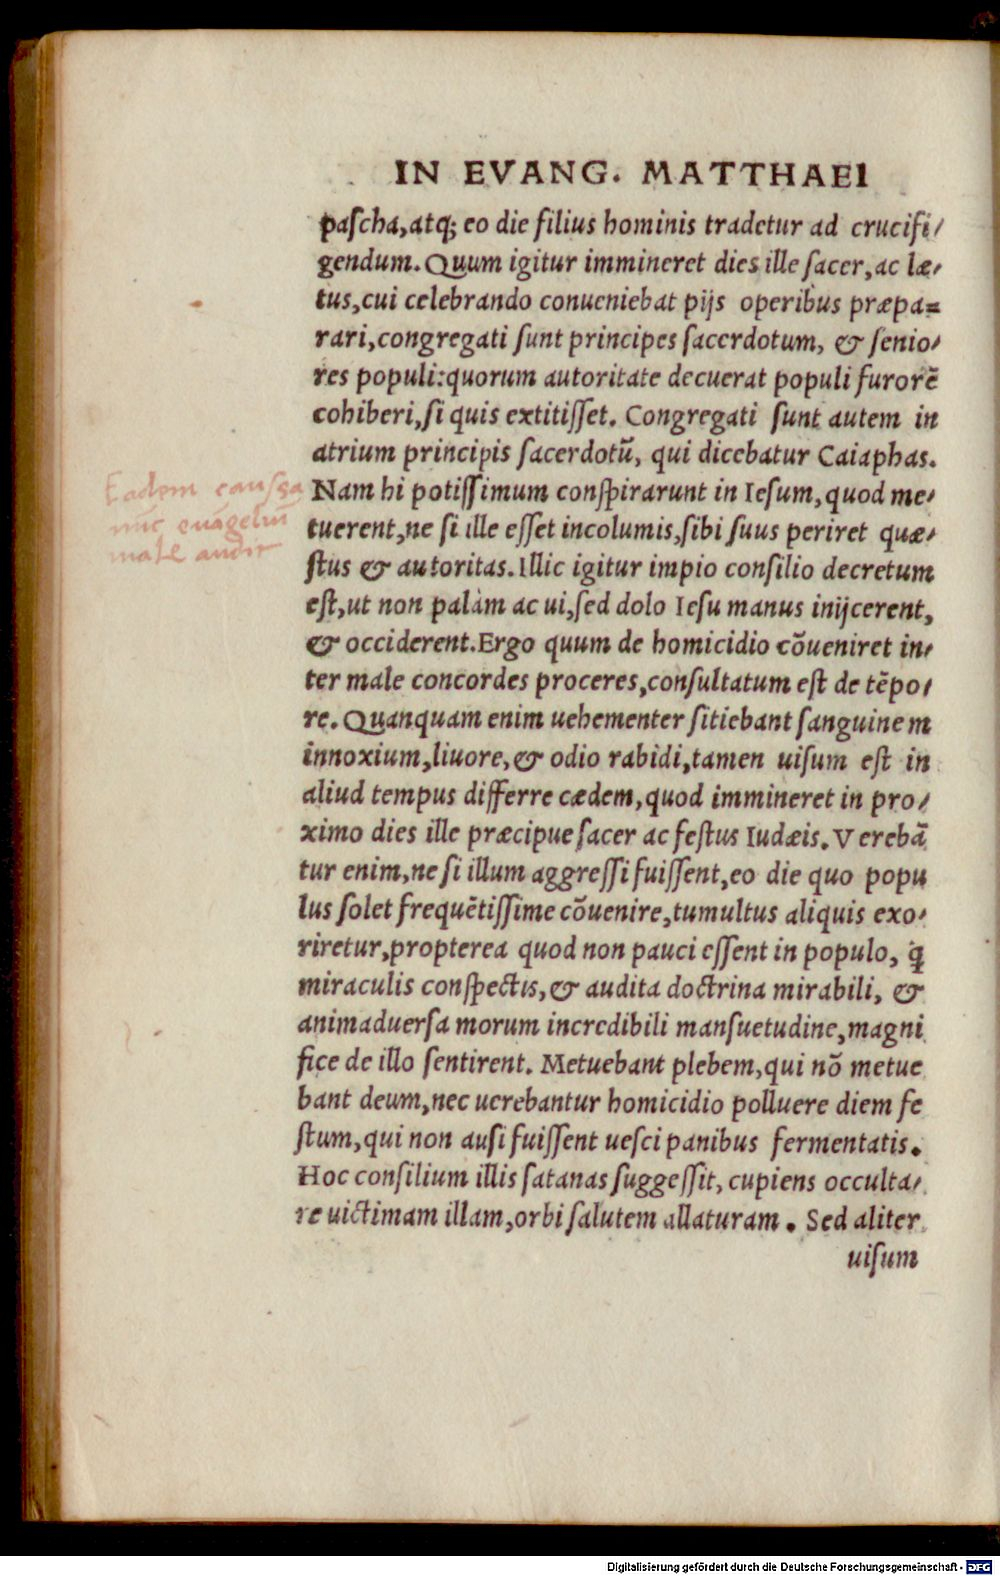 IN EVANG. MATTHAEI
paſcha,atq; eo die filius hominis tradetur ad crucifi/
gendum. Quum igitur immineret dies ille ſacer, ac læ/
tus,cui celebrando conueniebat pijs operibus præpa=
rari,congregati ſunt principes ſacerdotum, & ſenio/
res populi:quorum autoritate decuerat populi furorē
cohiberi,ſi quis extitiſſet. Congregati ſunt autem in
atrium principis ſacerdotū, qui dicebatur Caiaphas.
Eadem cauſſa
nūc euāgeliū
male audit
Nam hi potiſſimum conſpirarunt in Ieſum,quod me/
tuerent,ne ſi ille eſſet incolumis,ſibi ſuus periret quæ/
ſtus & autoritas.Illic igitur impio conſilio decretum
eſt,ut non palàm ac ui,ſed dolo Ieſu manus inijcerent,
& occiderent.Ergo quum de homicidio cōueniret in/
ter male concordes proceres,conſultatum eſt de tēpo/
re. Quanquam enim uehementer ſitiebant ſanguinem
innoxium,liuore,& odio rabidi,tamen uiſum eſt in
aliud tempus differre cædem,quod immineret in pro/
ximo dies ille præcipue ſacer ac feſtus Iudæis. Verebā
tur enim,ne ſi illum aggreſſi fuiſſent,eo die quo popu
lus ſolet frequētiſſime cōuenire,tumultus aliquis exo/
riretur,propterea quod non pauci eſſent in populo, ꝗ
miraculis conſpectis,& audita doctrina mirabili, &
animaduerſa morum incredibili manſuetudine,magni
fice de illo ſentirent. Metuebant plebem,qui nō metue
bant deum,nec uerebantur homicidio polluere diem fe
ſtum,qui non auſi fuiſſent ueſci panibus fermentatis.
Hoc conſilium illis ſatanas ſuggeſſit, cupiens occulta/
re uictimam illam,orbi ſalutem allaturam. Sed aliter
uiſum
Digitalisierung gefördert durch die Deutsche Forschungsgemeinschaft - DFG